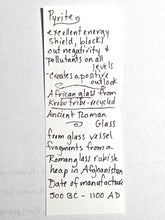 Pyrite
excellent energy
Shield, blocks
out negativity &
pollutants on all
levels
Creates a positive
outlook
African glass from
Krobo tribe - recycled
Ancient Roman
Glass
from glass vessel
fragments from a
Roman glass rubish
heap in Afghanistan
Date of manufacture
300 BC - 1100 AD